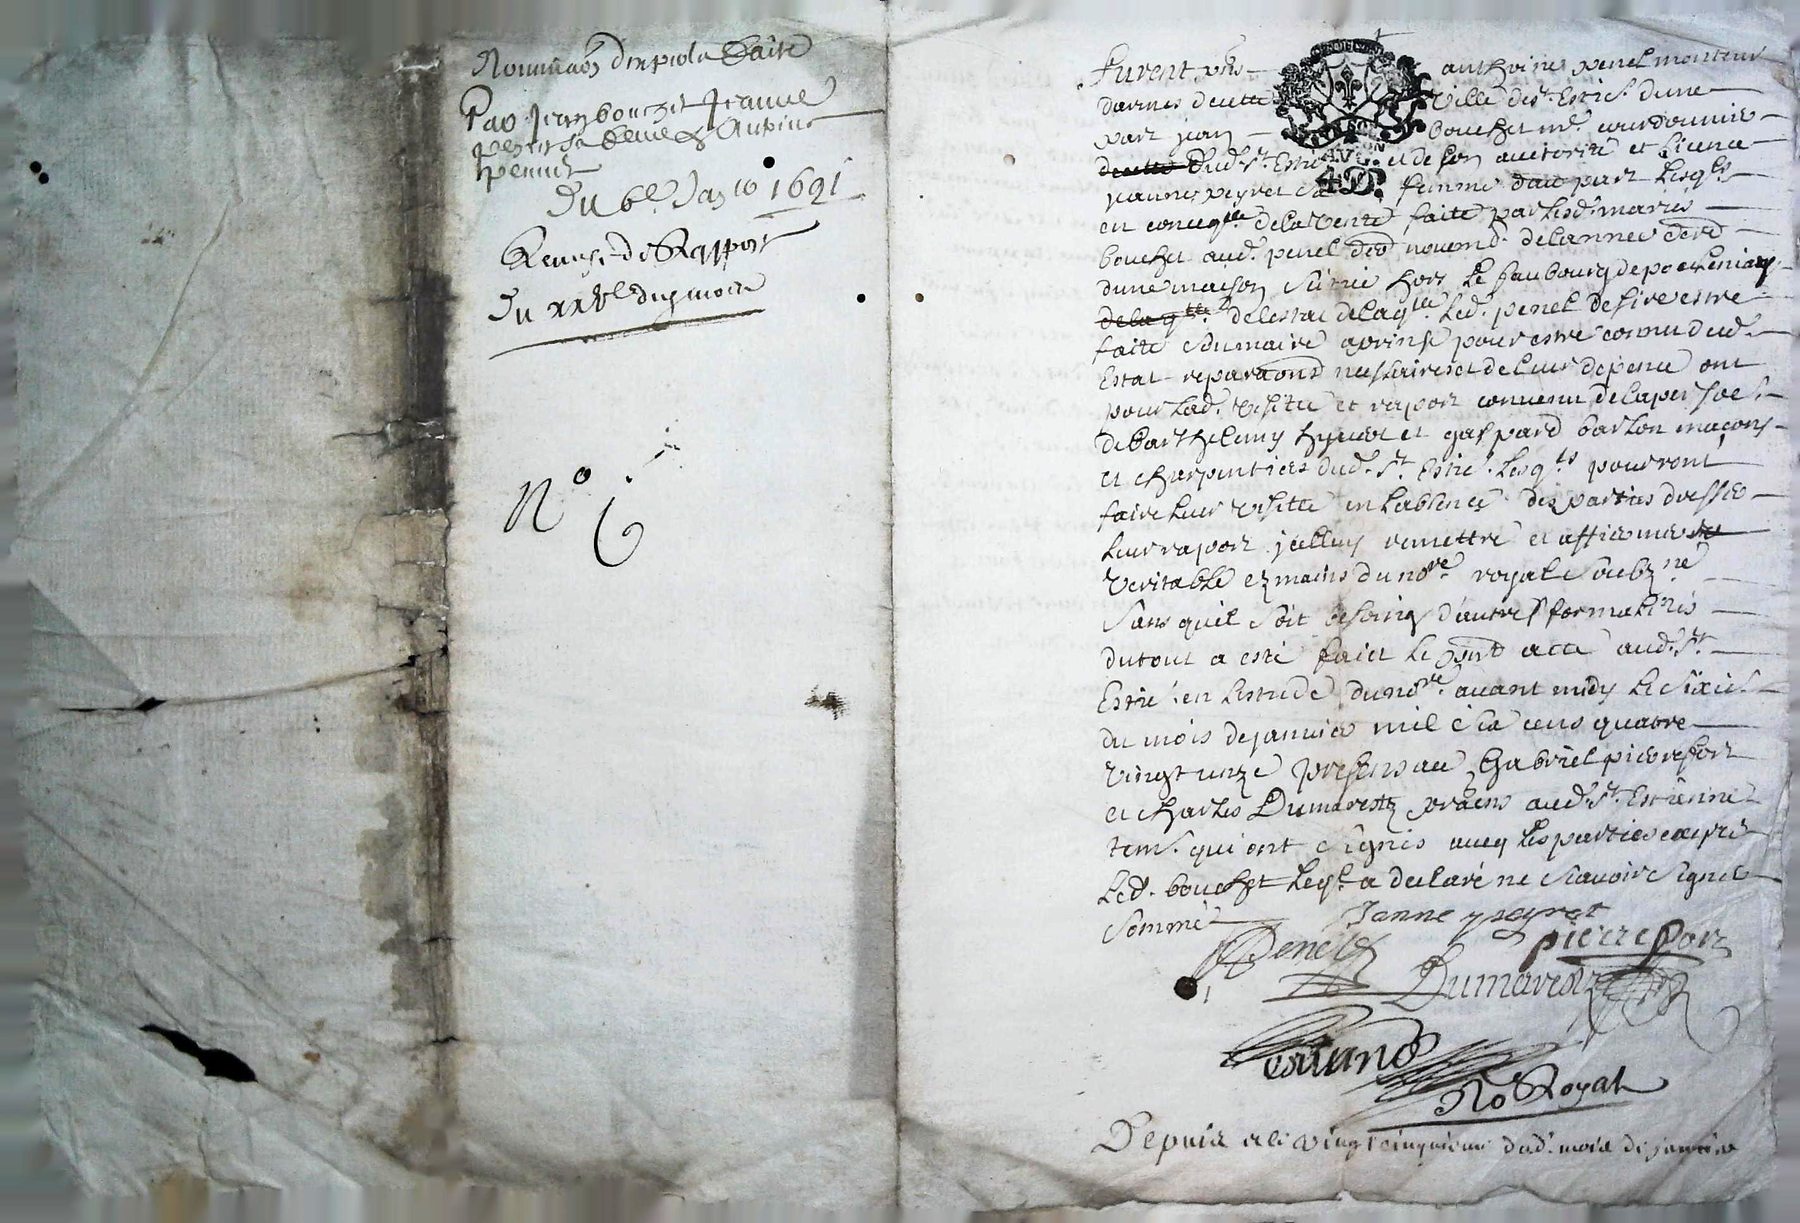 Nominaôn d'expts faite
Par Jean bouchet Jeanne
peyret sa femme & Antoine
penel
Du 6e. Janro 1691
Remise de Rapport
Du xxve dud mois
No 6
furent pns anthoine penel monteur
darmes de cette ville de St. Estne. dune
part jean bouchet me. courdonnie
dud. St. Estne et de son auctorité et licence
jeanne peyret sa femme daū part lesqls
en conseqce de la vente faite par lesd. mariés
bouchet aud. penel novemb. de lannee
dune maison size hors le faubourg de
de laq̃lle de lestat de laqlle led. penel desire estre
faite somaire aprinse pour estre connu dud.
Estat reparaons nessaires et de leur depence ont
pour lad. visitte et raport convenu de la persoe.
de Barthelemy et gaspard barlon maçons
et charpentiers dud. St. Estne. lesqls pourront
faire leur visitte en labsence des parties dresse
leur raport icelluy remettre et affirme
veritable ez mains du nore. royal soubzne
sans quil soit besoing d'autres formalités
du tout a esté faict le pnt acte aud. St.
Estne. en lestude du nore. avant midy le sixie.
du mois de janvier mil six cens quatre
vingt unze presens me Gabriel pierrefort
et charles Dumarestz praens aud. St. Estienne
tem. qui ont signés avec les parties excepté
led. bouchet leql a declaré ne scavoir signe
sommé
Janne peyret
Penel
pierrefort
Dumarestz
No Royal
Depuis et le vingt cinquieme dud. mois de janvier